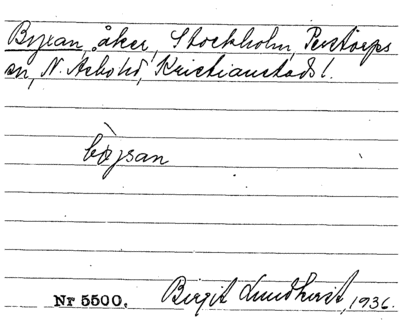 Byxan, åker, Stockholm, Perstorps
sn, N. Åsbo hd, Kristianstads l.
bỳsan
Nr 5500. Birgit Lundkvist, 1936.